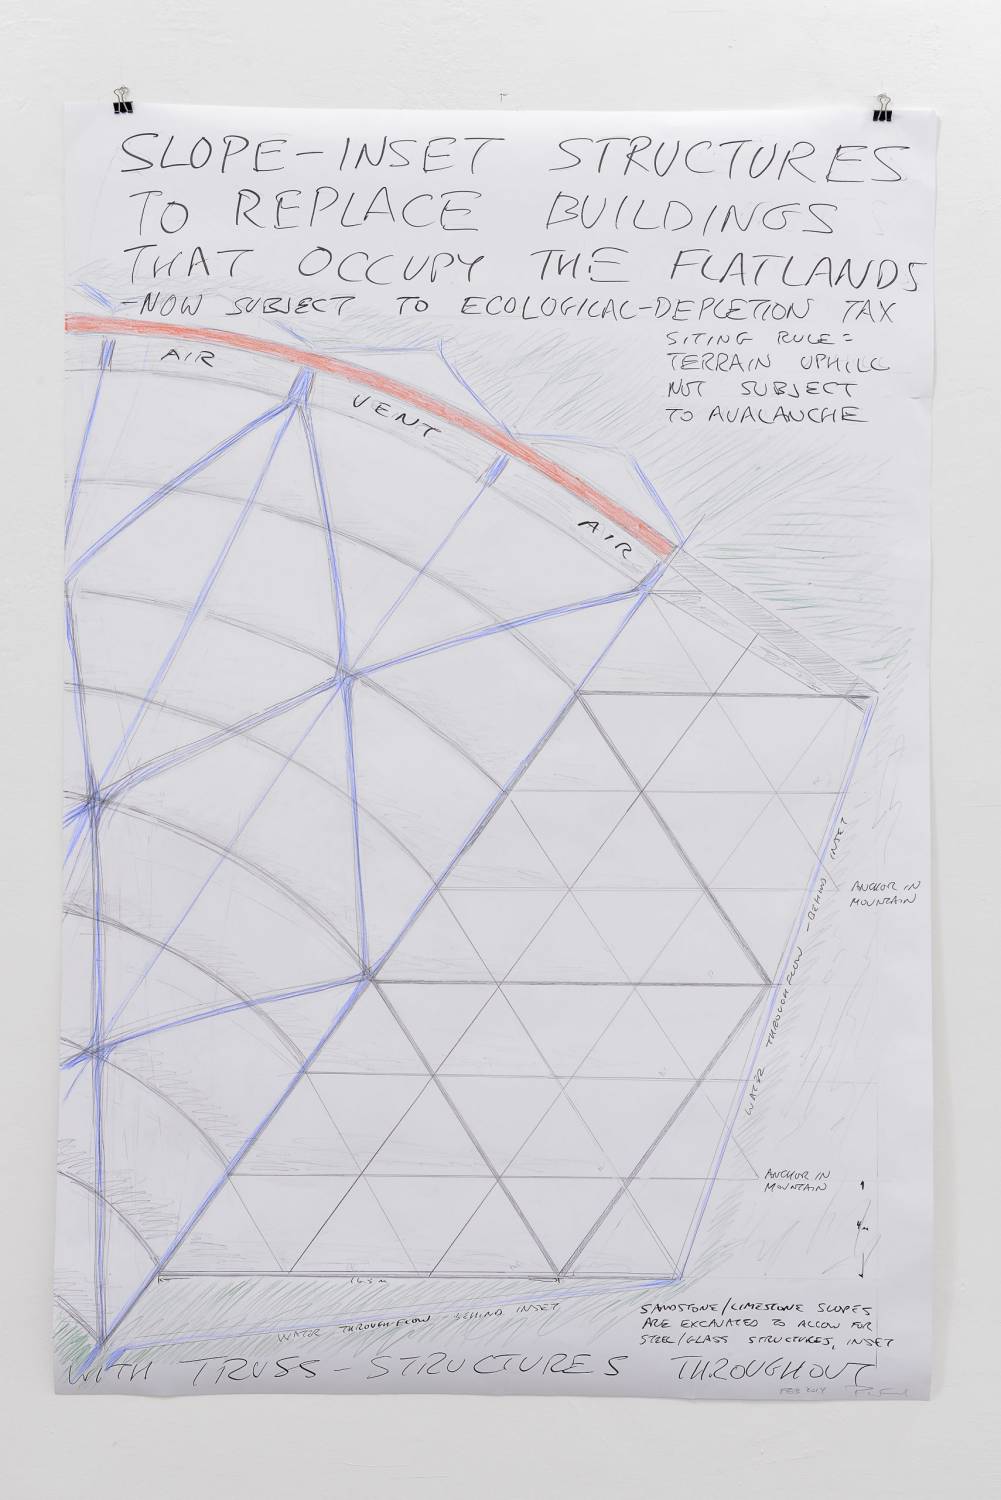 SLOPE-INSET STRUCTURES
TO REPLACE BUILDINGS
THAT OCCUPY THE FLATLANDS
-NOW SUBJECT TO ECOLOGICAL-DEPLETION TAX
SITING RULE=
TERRAIN UPHILL
NOT SUBJECT
TO AVALANCHE
AIR
VENT
AIR
WATER THROUGH-FLOW - BEHIND INSET
ANCHOR IN
MOUNTAIN
ANCHOR IN
MOUNTAIN
4m
WATER THROUGH-FLOW - BEHIND INSET
SANDSTONE/LIMESTONE SLOPES
ARE EXCAVATED TO ALLOW FOR
STEEL/GLASS STRUCTURES, INSET
WITH TRUSS-STRUCTURES THROUGHOUT
FEB 2014